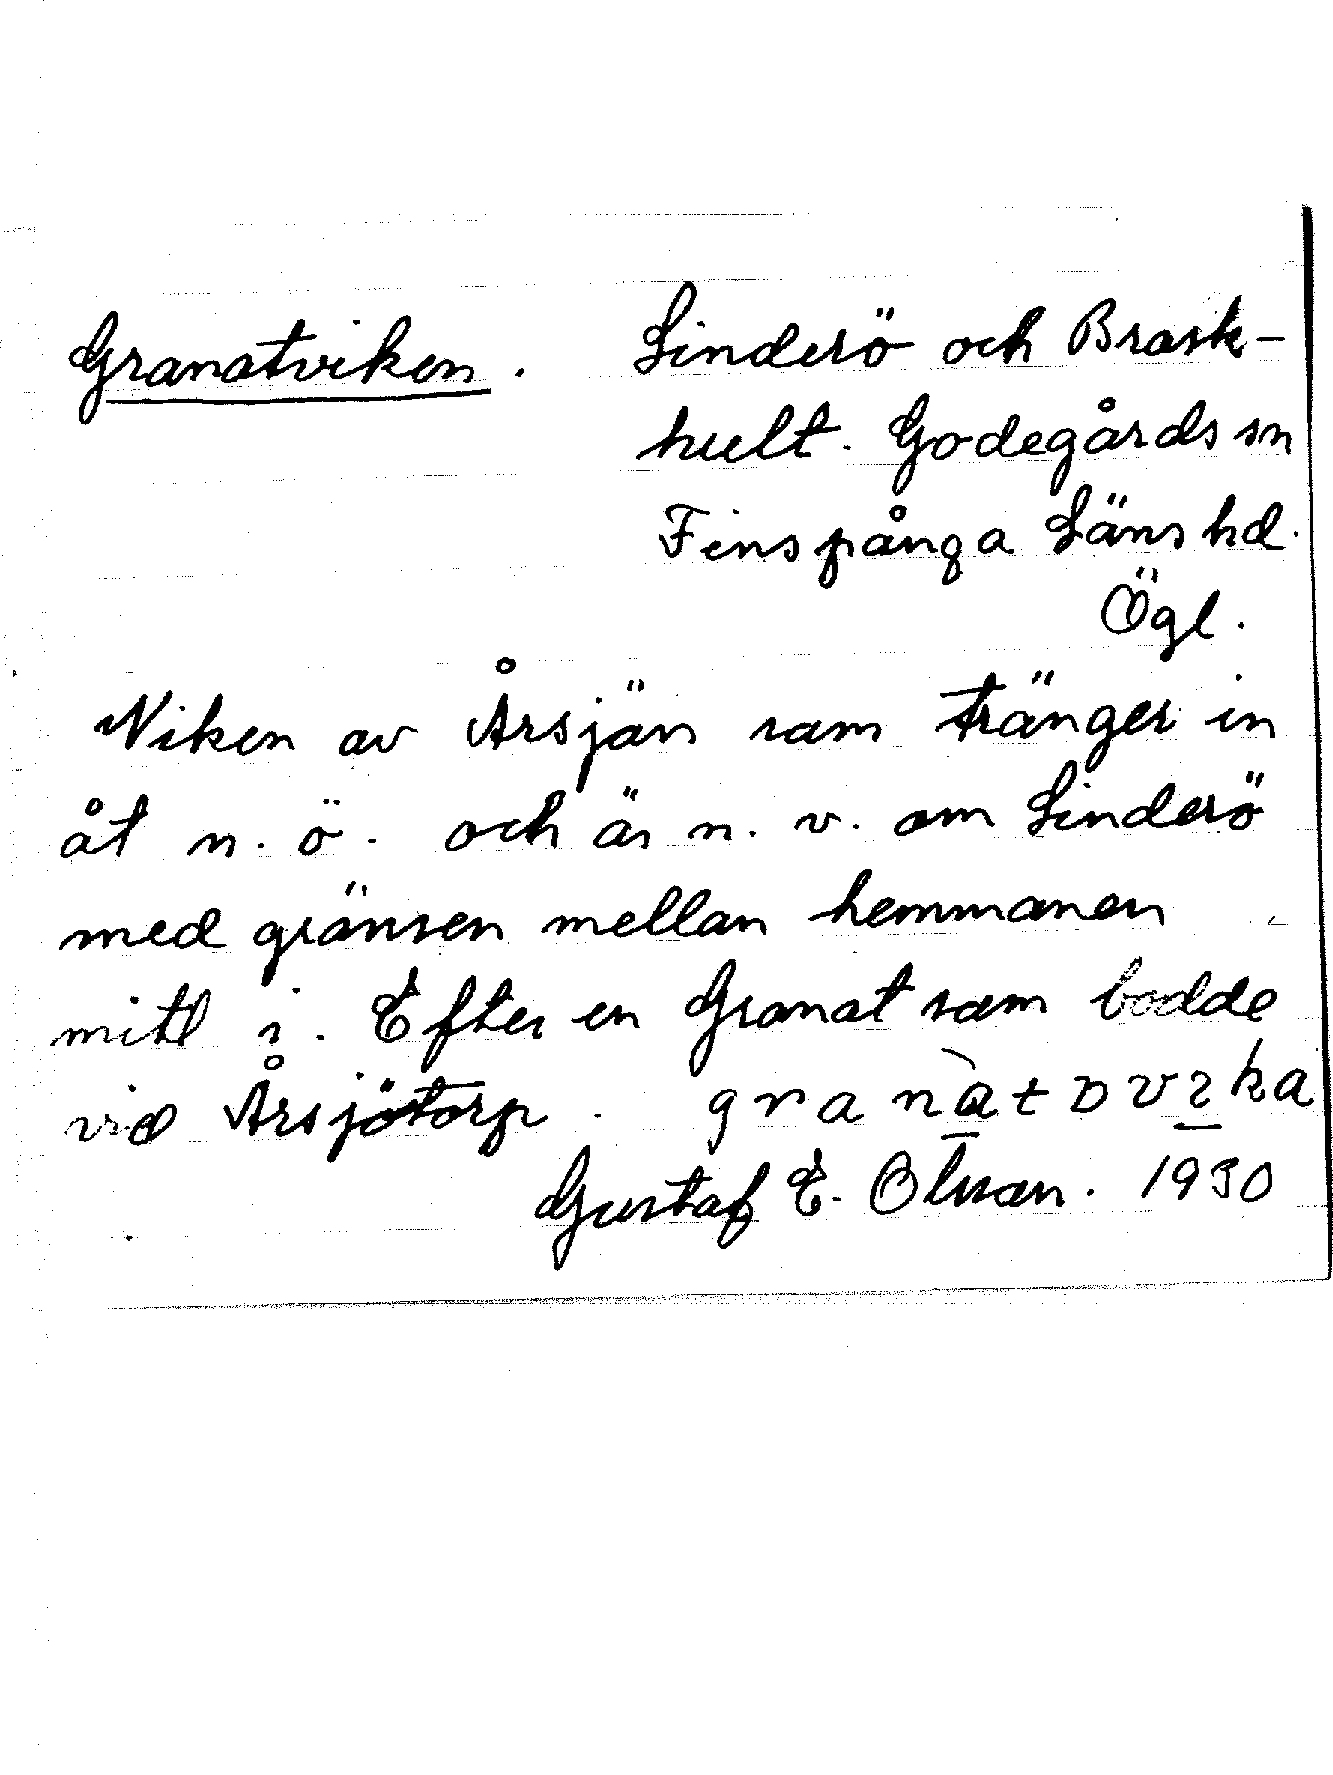 Granatviken. Linderö och Brask-
hult. Godegårds sn
Finspånga Läns hd.
Ögl.
Viken av Årsjön som tränger in
åt n. ö. och är n. v. om Linderö
med gränsen mellan hemmanen
mitt i. Efter en Granat som bodde
vid Årsjötorp.
Gustaf E. Olsson. 1930